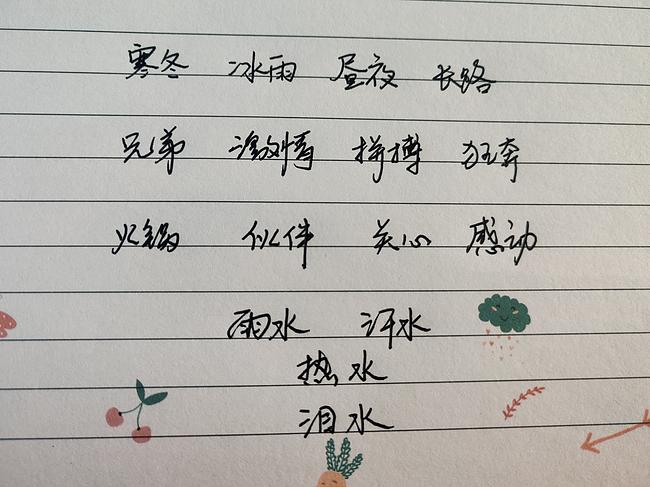 寒冬 冰雨 昼夜 长路
兄弟 激情 拼搏 狂奔
火锅 伙伴 关心 感动
雨水 汗水
热水
泪水